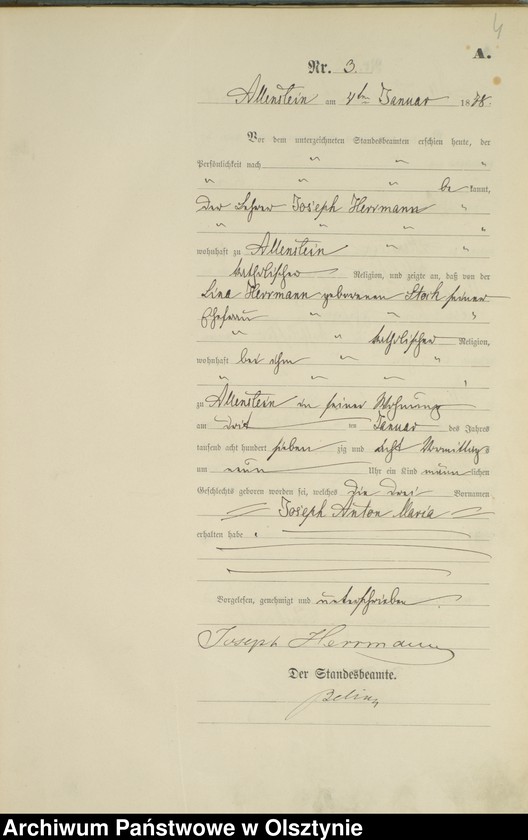 4
A.
Nr. 3.
Allenstein am 4ten Januar 1878.
Vor dem unterzeichneten Standesbeamten erschien heute, der
Persönlichkeit nach
be kannt,
Der Lehrer Joseph Herrmann
wohnhaft zu Allenstein
katholischer Religion, und zeigte an, daß von der
Lina Herrmann geborenen Stock seiner
Ehefrau
katholischer Religion,
wohnhaft bei ihm
zu Allenstein in seiner Wohnung
am drei ten Januar des Jahres
tausend acht hundert sieben zig und acht Vormittags
um neun Uhr ein Kind männ lichen
Geschlechts geboren worden sei, welches die drei Vornamen
Joseph Anton Maria
erhalten habe.
Vorgelesen, genehmigt und unterschrieben
Joseph Herrmann
Der Standesbeamte.
Archiwum Państwowe w Olsztynie